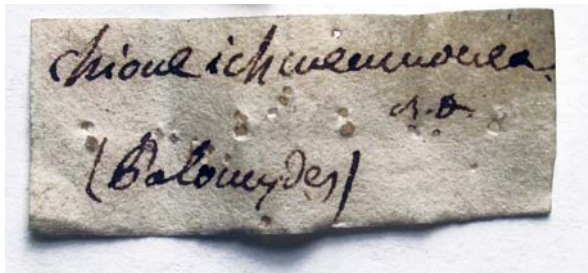 chione ichneumonea.
r.D.
(Palomydes)